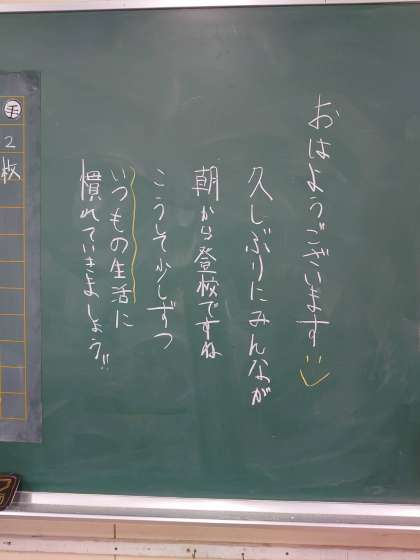 おはようございます
久しぶりにみんなが
朝から登校ですね
こうして少しずつ
いつもの生活に
慣れていきましょう!!
手
2枚